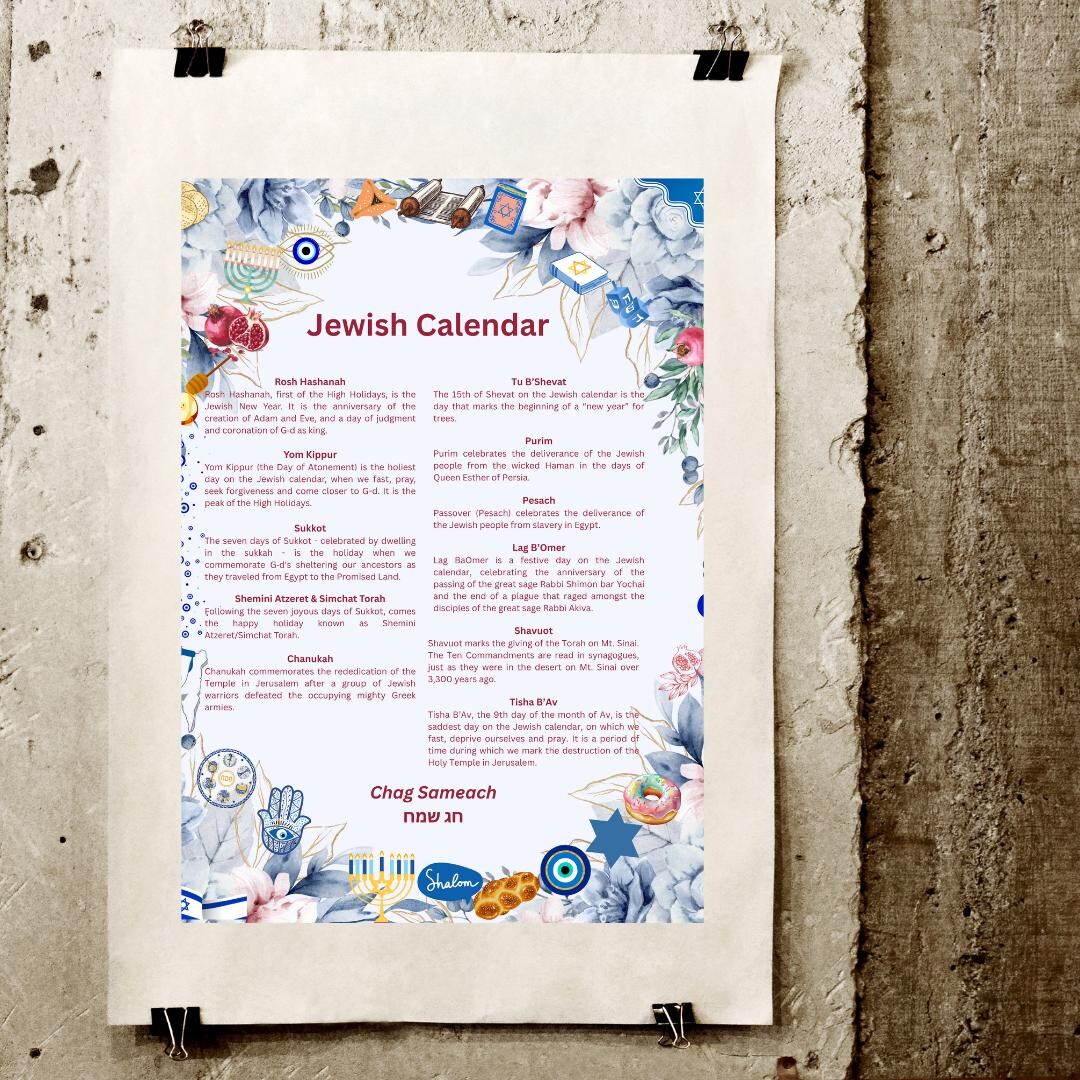 Jewish Calendar
Rosh Hashanah
Rosh Hashanah, first of the High Holidays, is the
Jewish New Year. It is the anniversary of the
creation of Adam and Eve, and a day of judgment
and coronation of G-d as king.
Yom Kippur
Yom Kippur (the Day of Atonement) is the holiest
day on the Jewish calendar, when we fast, pray,
seek forgiveness and come closer to G-d. It is the
peak of the High Holidays.
Sukkot
The seven days of Sukkot - celebrated by dwelling
in the sukkah - is the holiday when we
commemorate G-d's sheltering our ancestors as
they traveled from Egypt to the Promised Land.
Shemini Atzeret & Simchat Torah
Following the seven joyous days of Sukkot, comes
the happy holiday known as Shemini
Atzeret/Simchat Torah.
Chanukah
Chanukah commemorates the rededication of the
Temple in Jerusalem after a group of Jewish
warriors defeated the occupying mighty Greek
armies.
Tu B'Shevat
The 15th of Shevat on the Jewish calendar is the
day that marks the beginning of a "new year" for
trees.
Purim
Purim celebrates the deliverance of the Jewish
people from the wicked Haman in the days of
Queen Esther of Persia.
Pesach
Passover (Pesach) celebrates the deliverance of
the Jewish people from slavery in Egypt.
Lag B'Omer
Lag BaOmer is a festive day on the Jewish
calendar, celebrating the anniversary of the
passing of the great sage Rabbi Shimon bar Yochai
and the end of a plague that raged amongst the
disciples of the great sage Rabbi Akiva.
Shavuot
Shavuot marks the giving of the Torah on Mt. Sinai.
The Ten Commandments are read in synagogues,
just as they were in the desert on Mt. Sinai over
3,300 years ago.
Tisha B'Av
Tisha B'Av, the 9th day of the month of Av, is the
saddest day on the Jewish calendar, on which we
fast, deprive ourselves and pray. It is a period of
time during which we mark the destruction of the
Holy Temple in Jerusalem.
Chag Sameach
חג שמח
Shalom